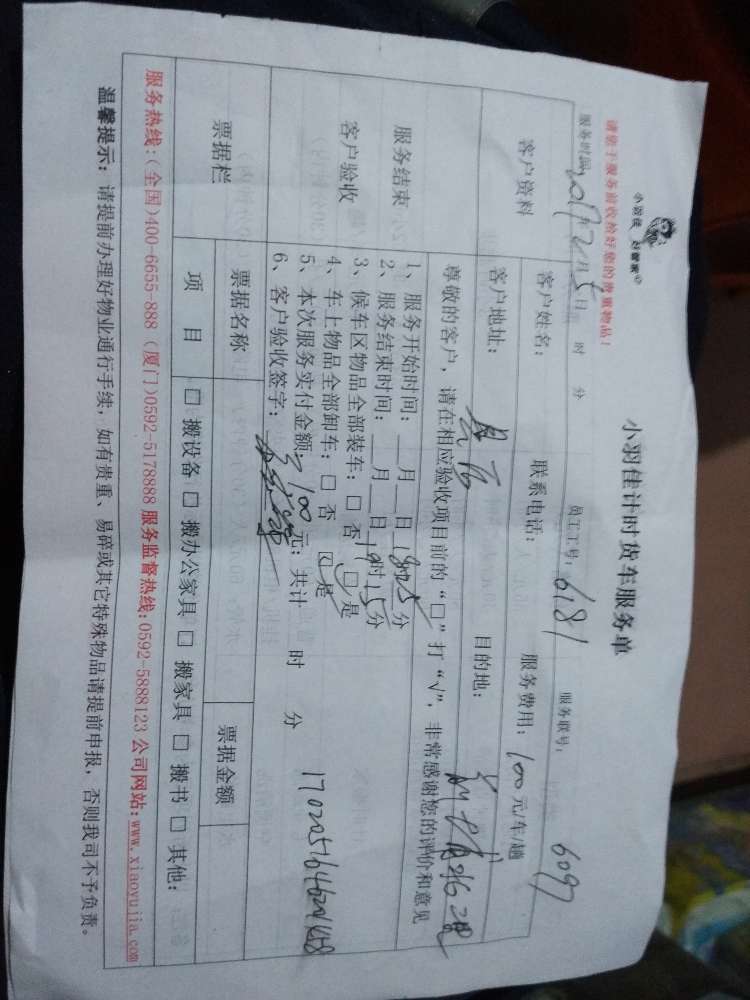 小羽佳 好管家
小羽佳计时货车服务单
请您于服务前收拾好您的贵重物品!
服务时间: 2017年2月5日 时 分 员工工号: 6181 服务联号: 6097
客户资料
客户姓名: 联系电话: 服务费用: 100元/车/趟
客户地址: 目的地:
尊敬的客户,请在相应验收项目前的“□”打“√”,非常感谢您的评价和意见
服务结束
客户验收
1、服务开始时间: 月 日 18时25分
2、服务结束时间: 月 日 19时15分
3、候车区物品全部装车: □ 否 □ 是
4、车上物品全部卸车: □ 否 □ 是
5、本次服务实付金额: 100元; 共计 时 分
6、客户验收签字:
票据栏
票据名称 票据金额
项 目 □ 搬设备 □ 搬办公家具 □ 搬家具 □ 搬书 □ 其他:
服务热线:(全国)400-6655-888 (厦门)0592-5178888 服务监督热线:0592-5888123 公司网站:www.xiaoyujia.com
温馨提示: 请提前办理好物业通行手续,如有贵重、易碎或其它特殊物品请提前申报,否则我司不予负责。